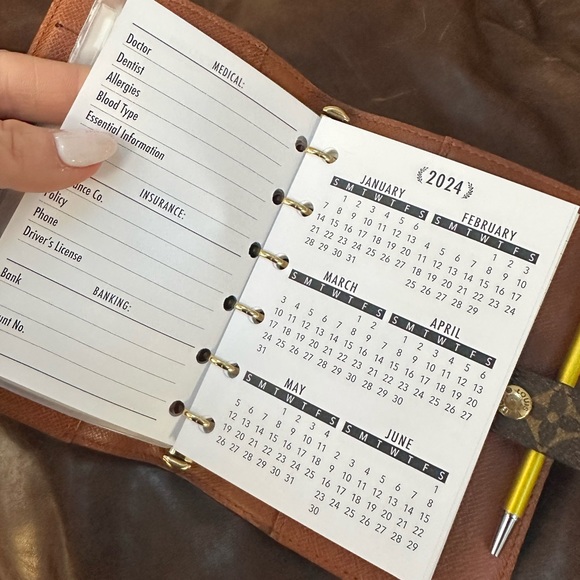 MEDICAL:
Doctor
Dentist
Allergies
Blood Type
Essential Information
INSURANCE:
ance Co.
Policy
Phone
Driver's License
BANKING:
Bank
unt No.
2024
JANUARY
S M T W T F S
1 2 3 4 5 6
7 8 9 10 11 12 13
14 15 16 17 18 19 20
21 22 23 24 25 26 27
28 29 30 31
FEBRUARY
S M T W T F S
1 2 3
4 5 6 7 8 9 10
11 12 13 14 15 16 17
18 19 20 21 22 23 24
25 26 27 28 29
MARCH
S M T W T F S
1 2
3 4 5 6 7 8 9
10 11 12 13 14 15 16
17 18 19 20 21 22 23
24 25 26 27 28 29 30
31
APRIL
S M T W T F S
1 2 3 4 5 6
7 8 9 10 11 12 13
14 15 16 17 18 19 20
21 22 23 24 25 26 27
28 29 30
MAY
S M T W T F S
1 2 3 4
5 6 7 8 9 10 11
12 13 14 15 16 17 18
19 20 21 22 23 24 25
26 27 28 29 30 31
JUNE
S M T W T F S
1
2 3 4 5 6 7 8
9 10 11 12 13 14 15
16 17 18 19 20 21 22
23 24 25 26 27 28 29
30